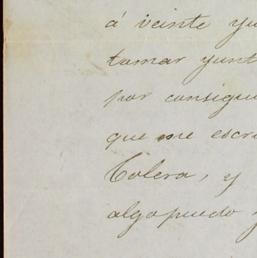 á veinte yu
tomar yunt
por consigu
que me escri
Colera, y
algo puedo